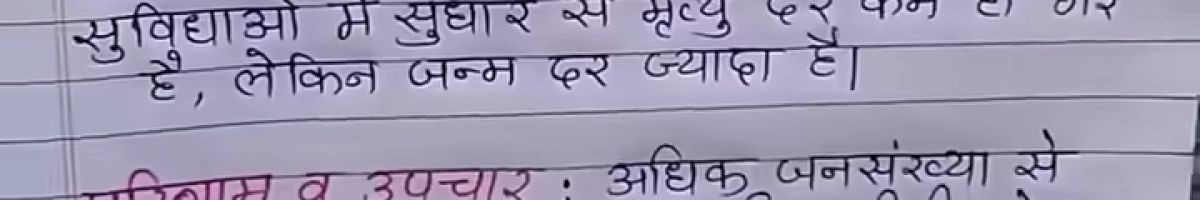 सुविधाओं में सुधार से मृत्यु दर कम हो गई
है, लेकिन जन्म दर ज्यादा है।
परिणाम व उपचार : अधिक जनसंख्या से